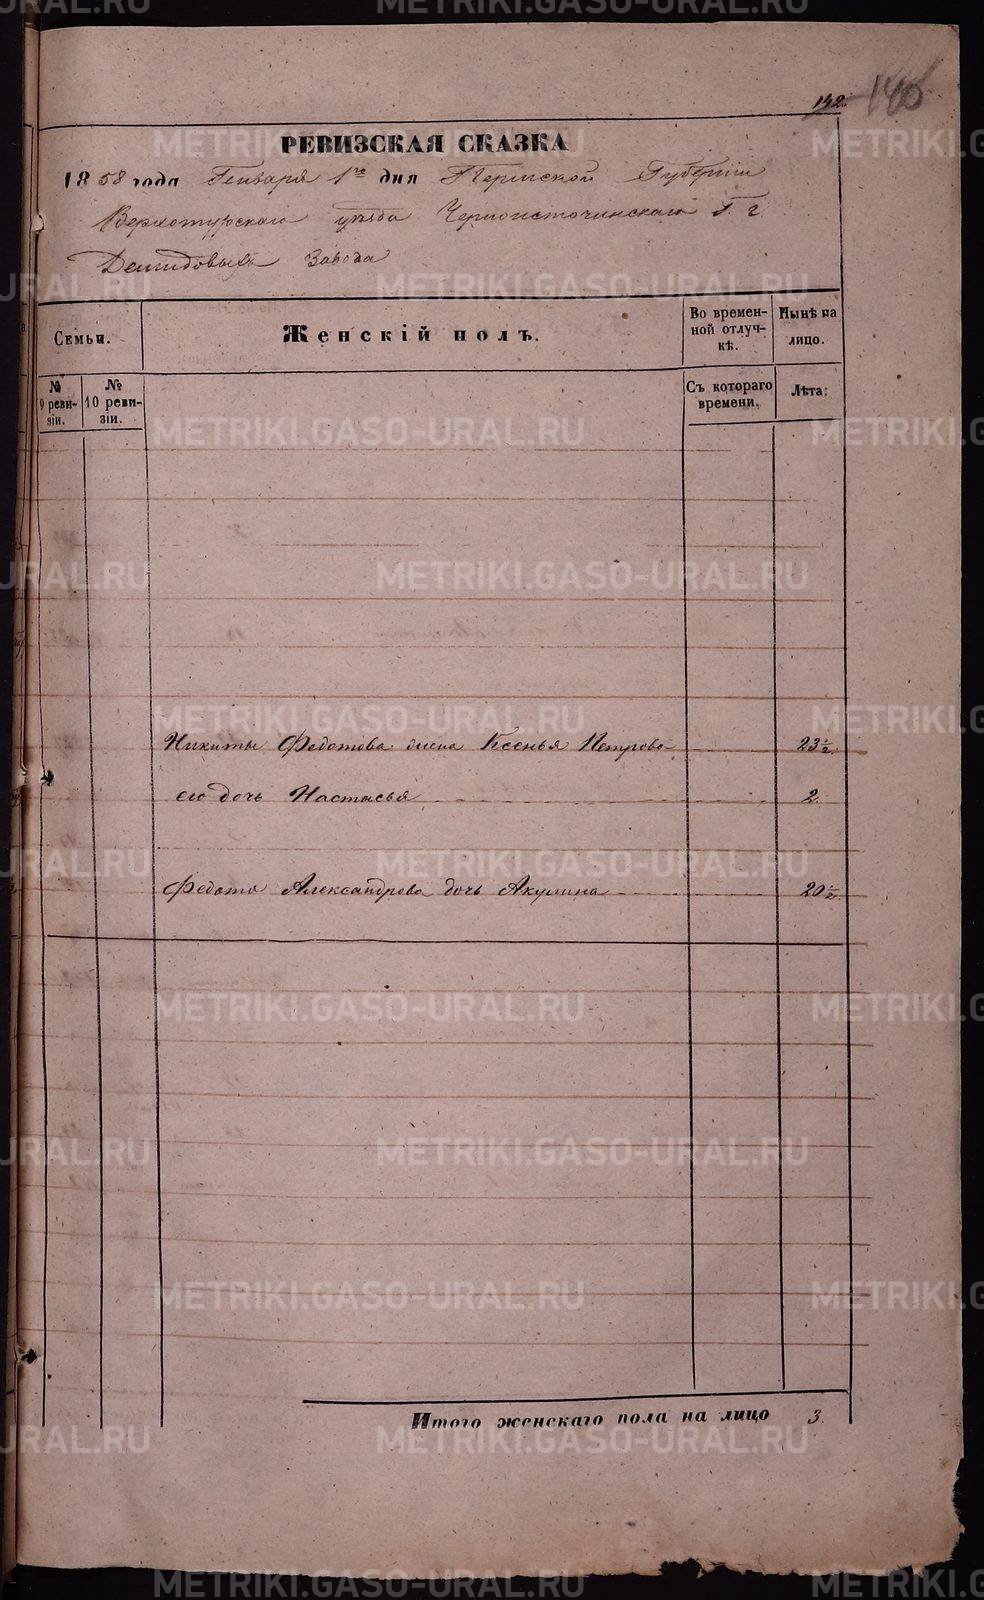 142. 140
РЕВИЗСКАЯ СКАЗКА
1858 года Генваря 1го дня Пермской Губернiи
Верхотурскаго уѣзда Черноисточинскаго Г. г.
Демидовыхъ Завода
Семьи. Женскiй полъ. Во времен-ной отлуч-кѣ. Нынѣ на лицо.
№ 9 реви-зiи. № 10 реви-зiи. Съ котораго времени. Лѣта:
Никиты Федотова жена Ксенья Петрова 23 1/2.
его дочь Настасья 2.
Федота Александрова дочь Акулина 20 1/2.
Итого женскаго пола на лицо 3.
METRIKI.GASO-URAL.RU